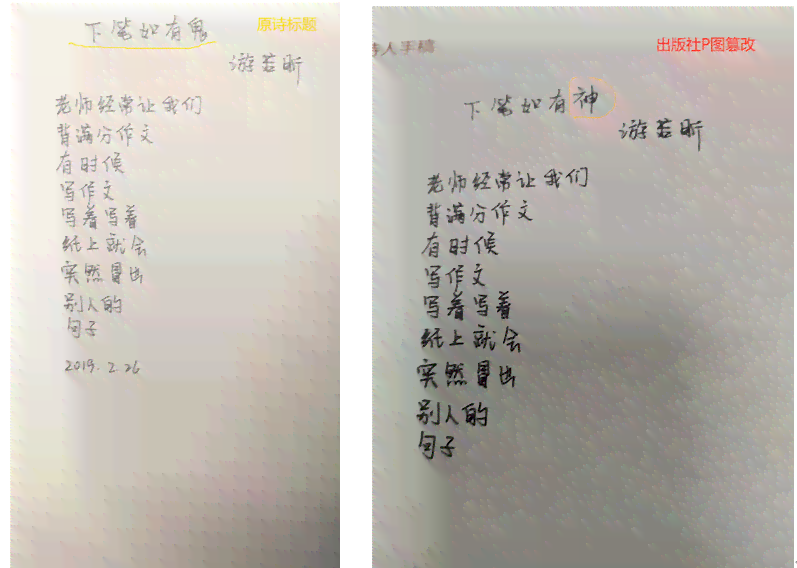 下笔如有鬼
原诗标题
游若昕
老师经常让我们
背满分作文
有时候
写作文
写着写着
纸上就会
突然冒出
别人的
句子
2019.2.26
诗人手稿
出版社P图篡改
下笔如有神
游若昕
老师经常让我们
背满分作文
有时候
写作文
写着写着
纸上就会
突然冒出
别人的
句子